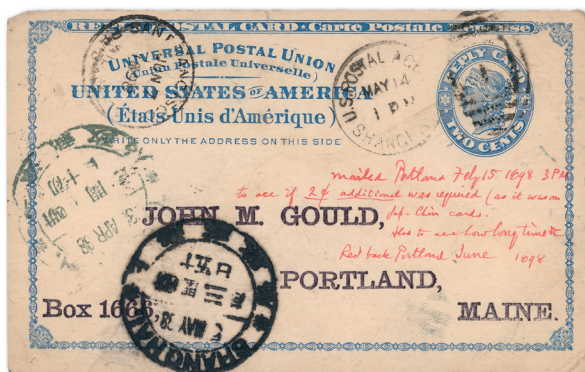 REPLY POSTAL CARD - Carte Postale Réponse
UNIVERSAL POSTAL UNION
(Union Postale Universelle)
UNITED STATES OF AMERICA
(États-Unis d'Amérique)
WRITE ONLY THE ADDRESS ON THIS SIDE
REPLY CARD
TWO CENTS
U.S. POSTAL AGCY
MAY 14
1 PM
SHANGHAI
SAN FRANCISCO
APR 98
mailed Portland Feby 15 1898 3 PM
to see if 2¢ additional was required (as it was on
Jap. Chin cards.
Also to see how long time &c
Recd back Portland June 1898
JOHN M. GOULD,
PORTLAND,
Box 1666
MAINE.
MAY 98
SHANGHAI